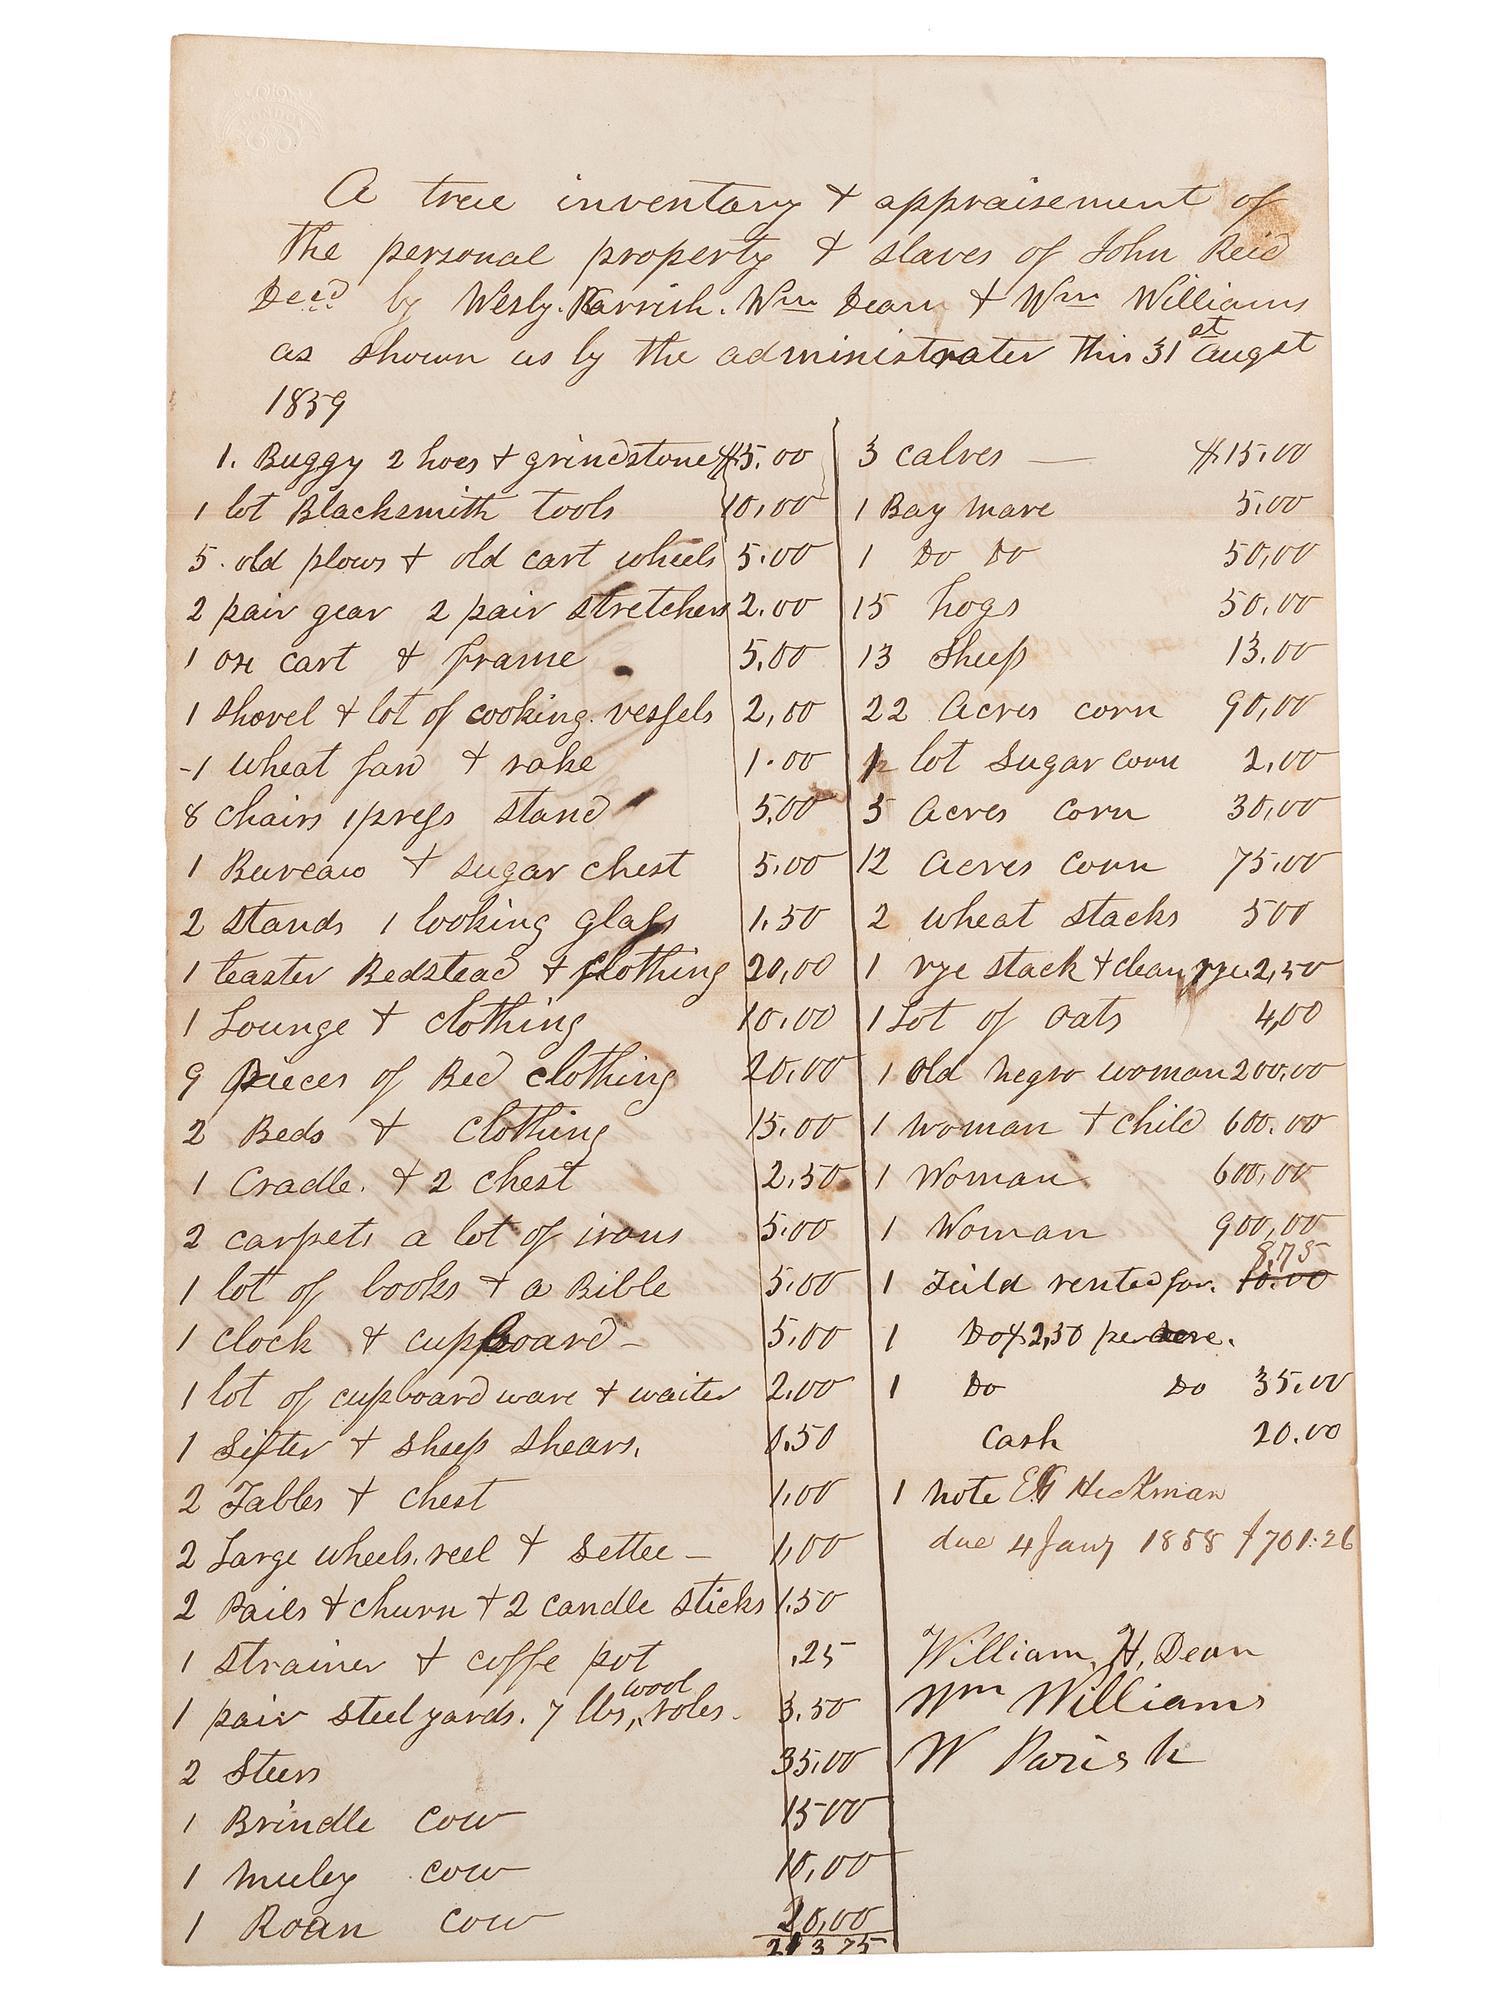 LONDON
A true inventory & appraisement of
the personal property & slaves of John Reid
Decd by Wesly. Parrish. Wm Dean & Wm Williams
as shown us by the administrater this 31st augst
1859
1. Buggy 2 hoes & grindstone $5.00
1 lot Blacksmith tools 10.00
5. old plows & old cart wheels 5.00
2 pair gear 2 pair stretchers 2.00
1 ox cart & frame 5.00
1 shovel & lot of cooking vessels 2,00
1 wheat fan & rake 1.00
8 chairs 1 press stand 5,00
1 Bureau & sugar chest 5.00
2 stands 1 looking glass 1.50
1 teaster Bedstead & clothing 20,00
1 Lounge & clothing 10.00
9 pieces of Bed clothing 20.00
2 Beds & clothing 15.00
1 Cradle. & 2 chest 2.50
2 carpets a lot of irons 5.00
1 lot of books & a Bible 5.00
1 clock & cupboard – 5.00
1 lot of cupboard ware & waiter 2.00
1 Sifter & sheep shears. 0.50
2 Tables & chest 1.00
2 Large wheels. reel & settee – 1,00
2 Pails & churn & 2 candle sticks 1.50
1 strainer & coffe pot .25
1 pair steelyards. 7 lbs, wool roles. 3.50
2 Steers 35.00
1 Brindle cow 15 00
1 muley cow 10,00
1 Roan cow 20,00
213 75
3 calves — $15.00
1 Bay mare 5.00
1 Do Do 50,00
15 hogs 50.00
13 sheep 13.00
22 Acres corn 90,00
1 lot sugar corn 2,00
5 Acres corn 30,00
12 Acres corn 75.00
2 wheat stacks 500
1 rye stack & clean rye 2,50
1 Lot of oats 4,00
1 old negro woman 200.00
1 woman & child 600.00
1 Woman 600,00
1 Woman 900,00
1 Feild rented for. 10.00 8,75
1 Do $2,50 per acre.
1 Do Do 35.00
Cash 20.00
1 note Heckman
due 4 Jany 1858 $701.26
William, H, Dean
Wm Williams
W Parish